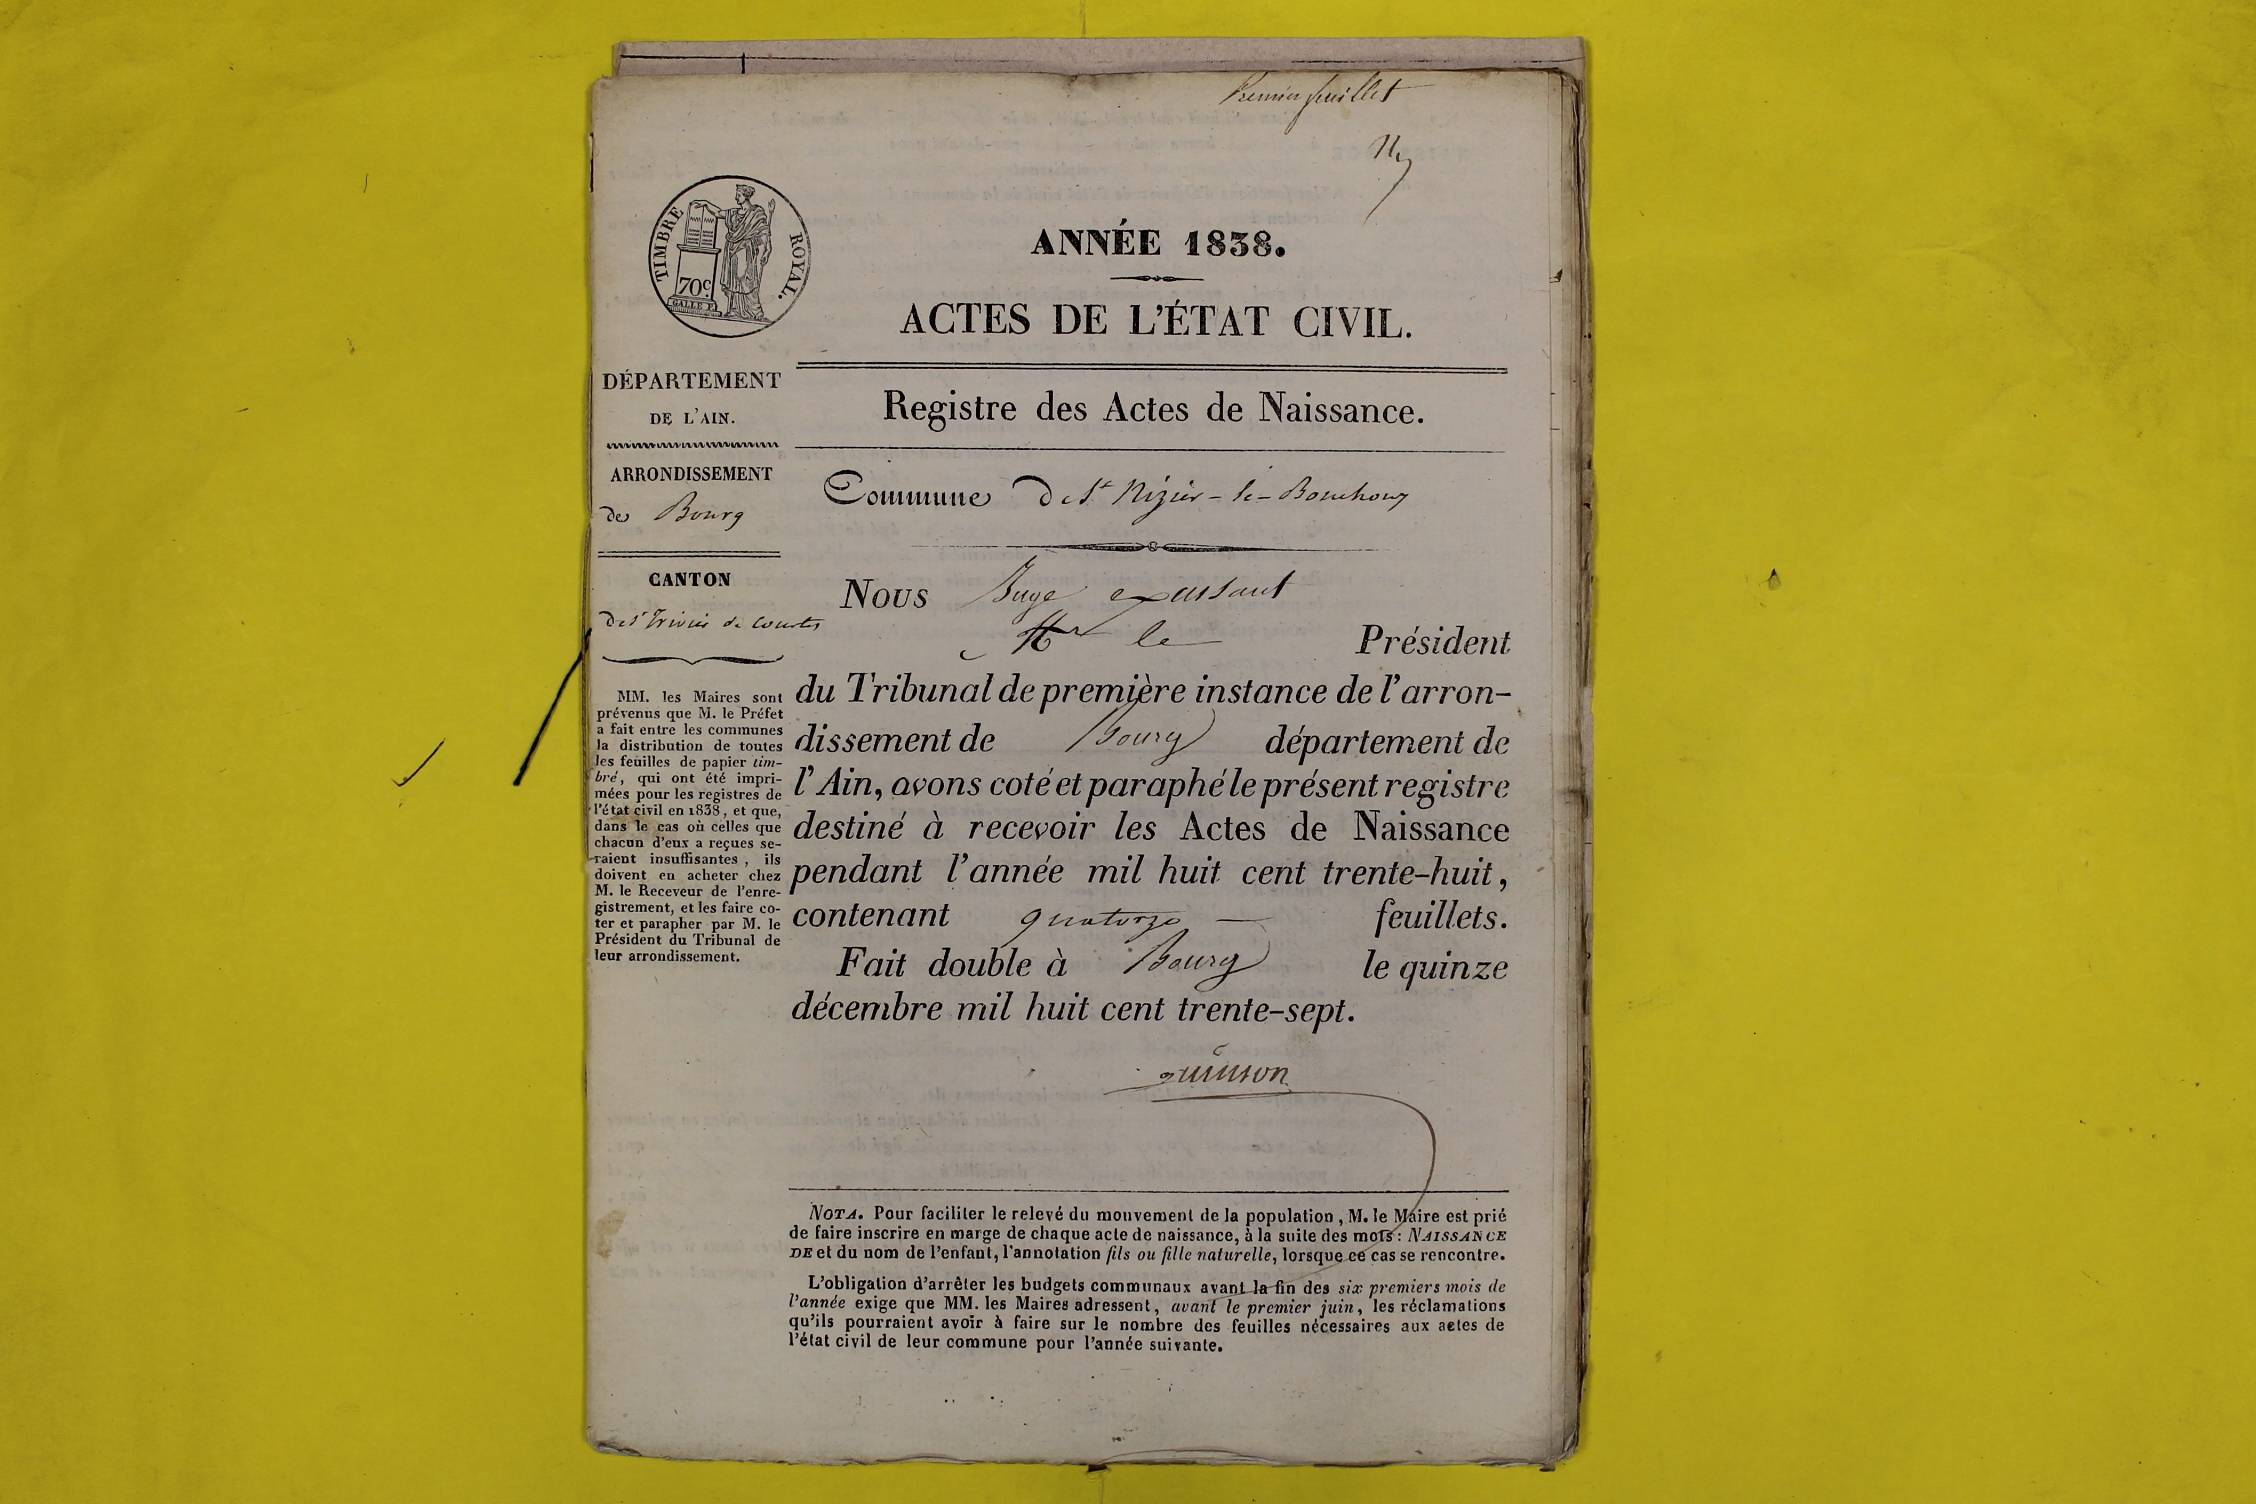 Premier feuillet
TIMBRE ROYAL.
70c.
GALLE F.
ANNÉE 1838.
ACTES DE L'ÉTAT CIVIL.
DÉPARTEMENT
DE L'AIN.
ARRONDISSEMENT
de Bourg
CANTON
de St Trivier de Courtes
MM. les Maires sont
prévenus que M. le Préfet
a fait entre les communes
la distribution de toutes
les feuilles de papier tim-
bré, qui ont été impri-
mées pour les registres de
l'état civil en 1838, et que,
dans le cas où celles que
chacun d'eux a reçues se-
raient insuffisantes, ils
doivent en acheter chez
M. le Receveur de l'enre-
gistrement, et les faire co-
ter et parapher par M. le
Président du Tribunal de
leur arrondissement.
Registre des Actes de Naissance.
Commune de St Nizier-le-Bouchoux
Nous Juge
Mr le Président
du Tribunal de première instance de l'arron-
dissement de Bourg département de
l'Ain, avons coté et paraphé le présent registre
destiné à recevoir les Actes de Naissance
pendant l'année mil huit cent trente-huit,
contenant quatorze feuillets.
Fait double à Bourg le quinze
décembre mil huit cent trente-sept.
NOTA. Pour faciliter le relevé du mouvement de la population, M. le Maire est prié
de faire inscrire en marge de chaque acte de naissance, à la suite des mots : NAISSANCE
DE et du nom de l'enfant, l'annotation fils ou fille naturelle, lorsque ce cas se rencontre.
L'obligation d'arrêter les budgets communaux avant la fin des six premiers mois de
l'année exige que MM. les Maires adressent, avant le premier juin, les réclamations
qu'ils pourraient avoir à faire sur le nombre des feuilles nécessaires aux actes de
l'état civil de leur commune pour l'année suivante.